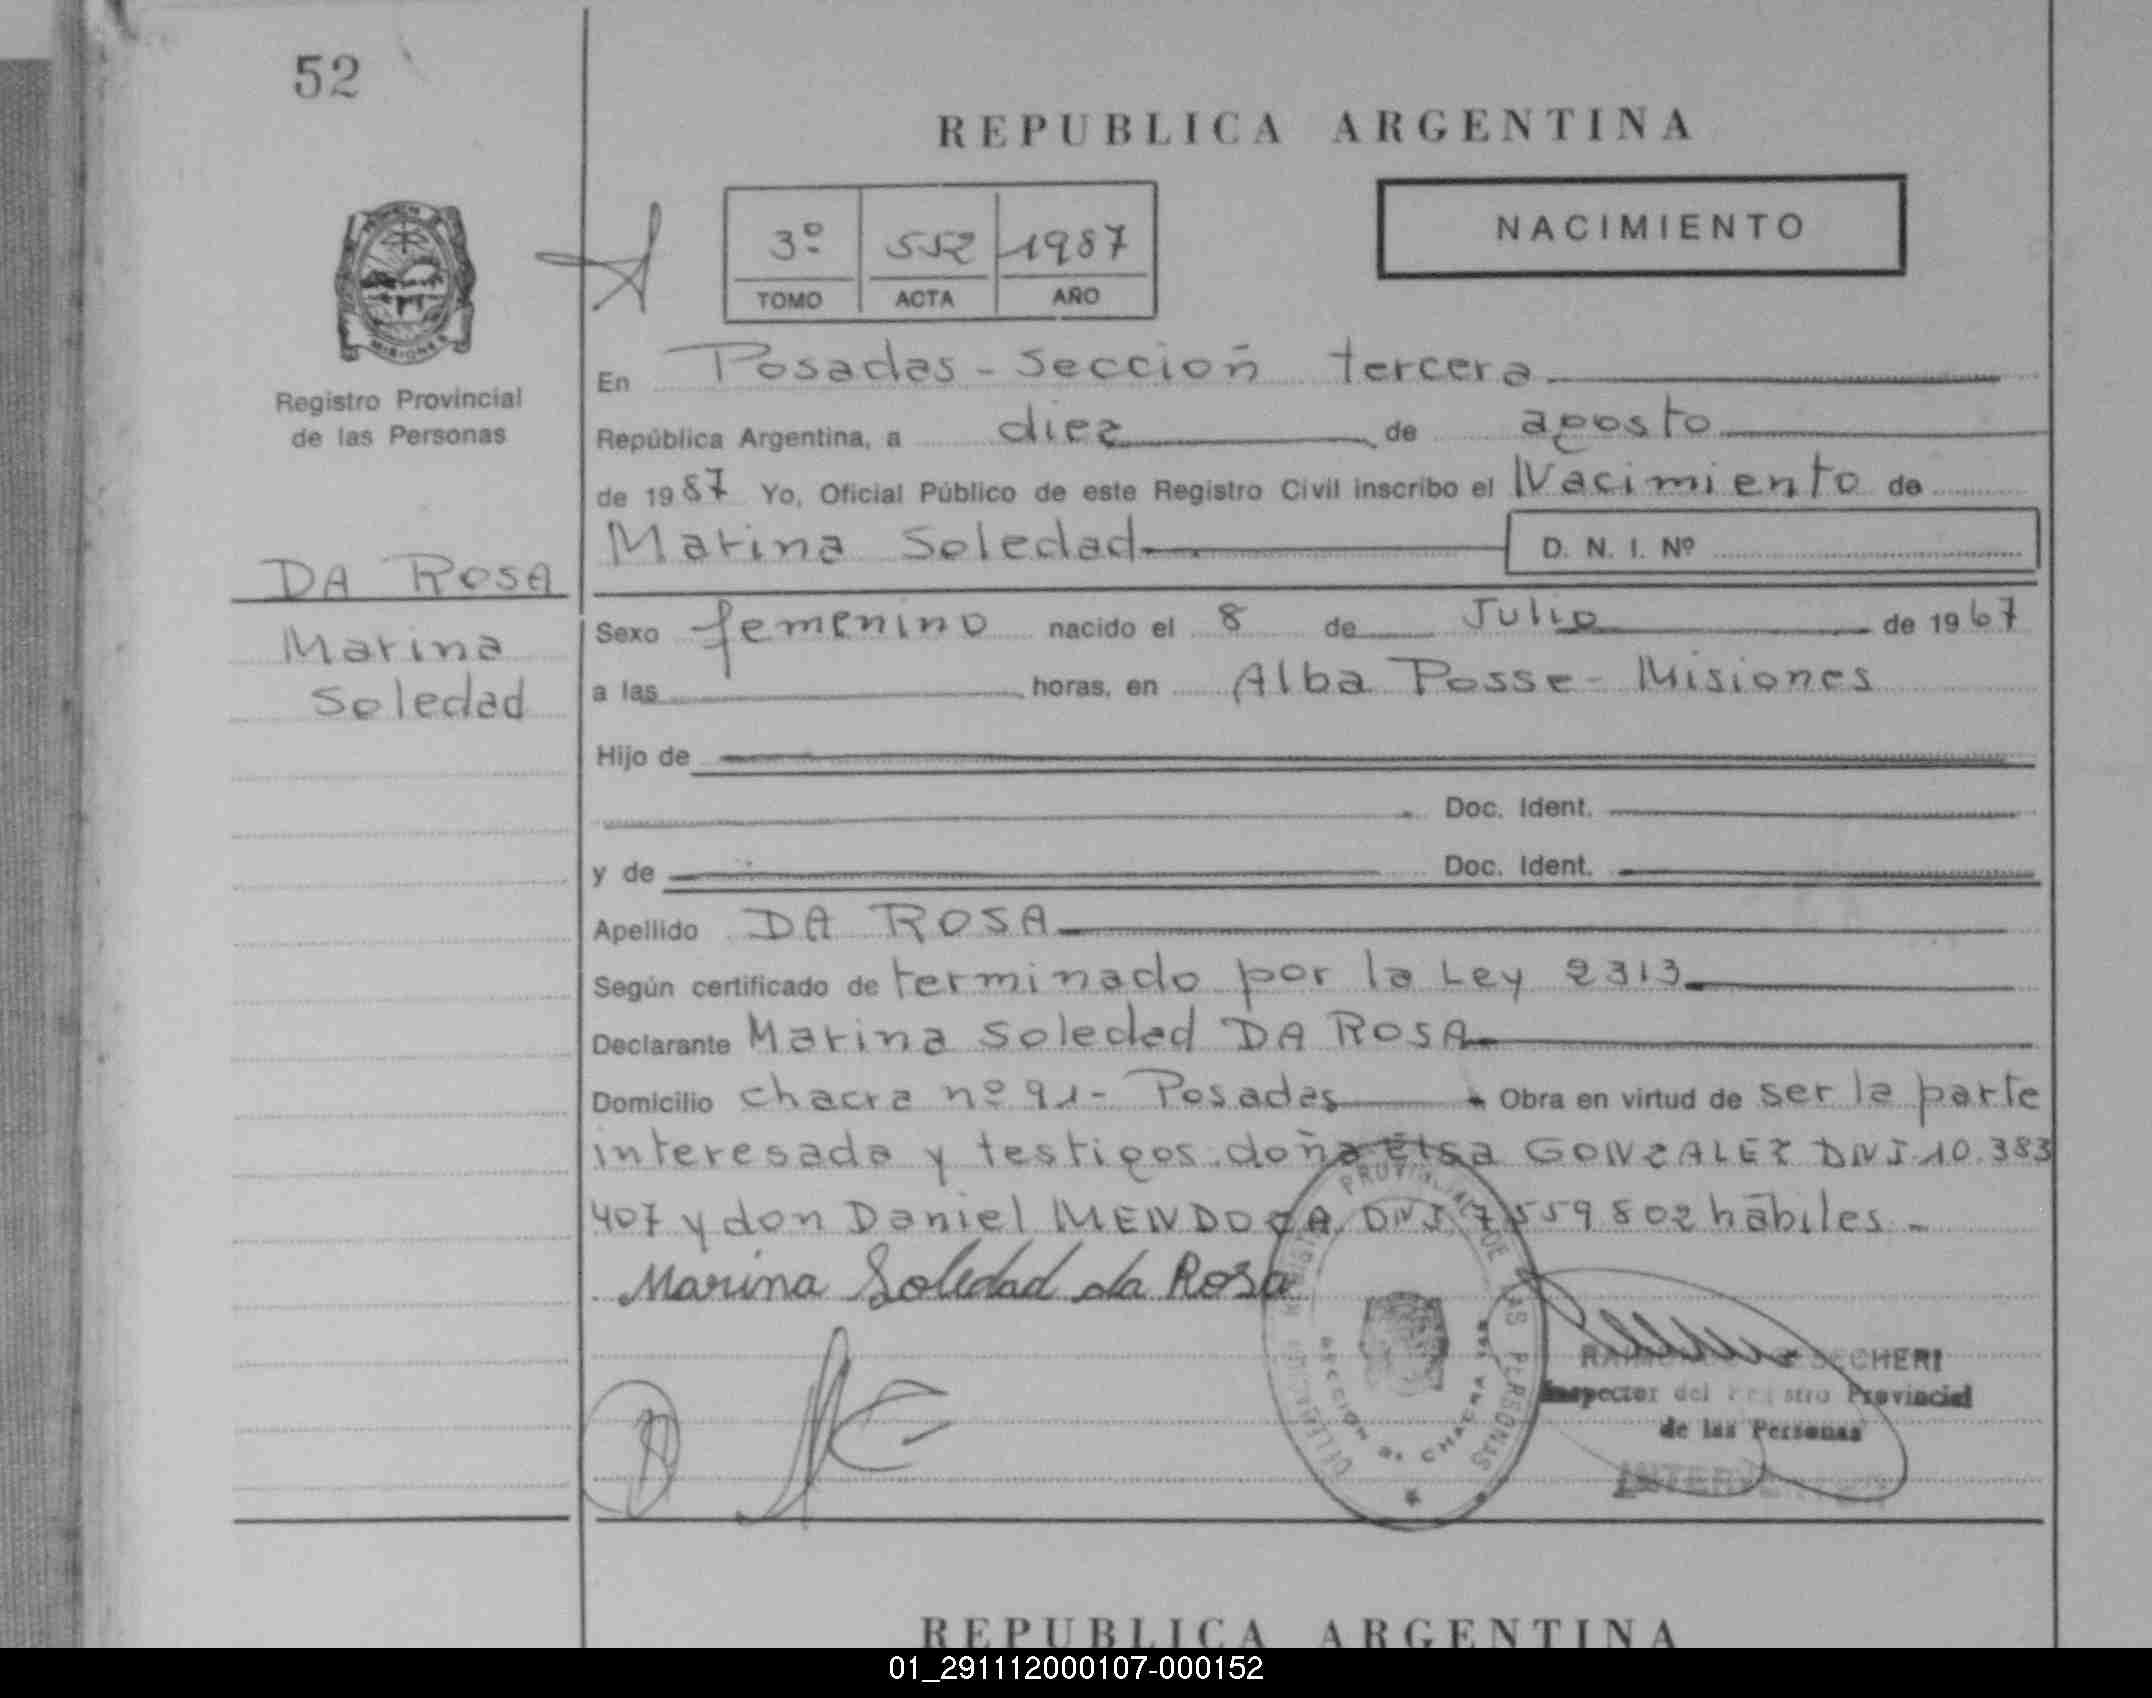 52
REPUBLICA ARGENTINA
3º 552 1987
TOMO ACTA AÑO
NACIMIENTO
MISIONES
Registro Provincial
de las Personas
En Posadas - Sección tercera
República Argentina, a diez de agosto
de 1987 Yo, Oficial Público de este Registro Civil inscribo el Nacimiento de
Marina Soledad D. N. I. Nº
DA ROSA
Marina
Soledad
Sexo femenino nacido el 8 de Julio de 1967
a las horas, en Alba Posse - Misiones
Hijo de
Doc. Ident.
y de Doc. Ident.
Apellido DA ROSA
Según certificado de terminado por la Ley 2313
Declarante Marina Soledad DA ROSA
Domicilio chacra nº 91 - Posadas Obra en virtud de ser la parte
interesada y testigos doña Elsa GONZALEZ DNI 10.383
407 y don Daniel MENDOZA DNI 7559802 hábiles -
Marina Soledad da Rosa
PROVINCIAL DE LAS PERSONAS
SECCION 3ª CHACRA
SECHERI
Inspector del Registro Provincial
de las Personas
REPUBLICA ARGENTINA
01_291112000107-000152